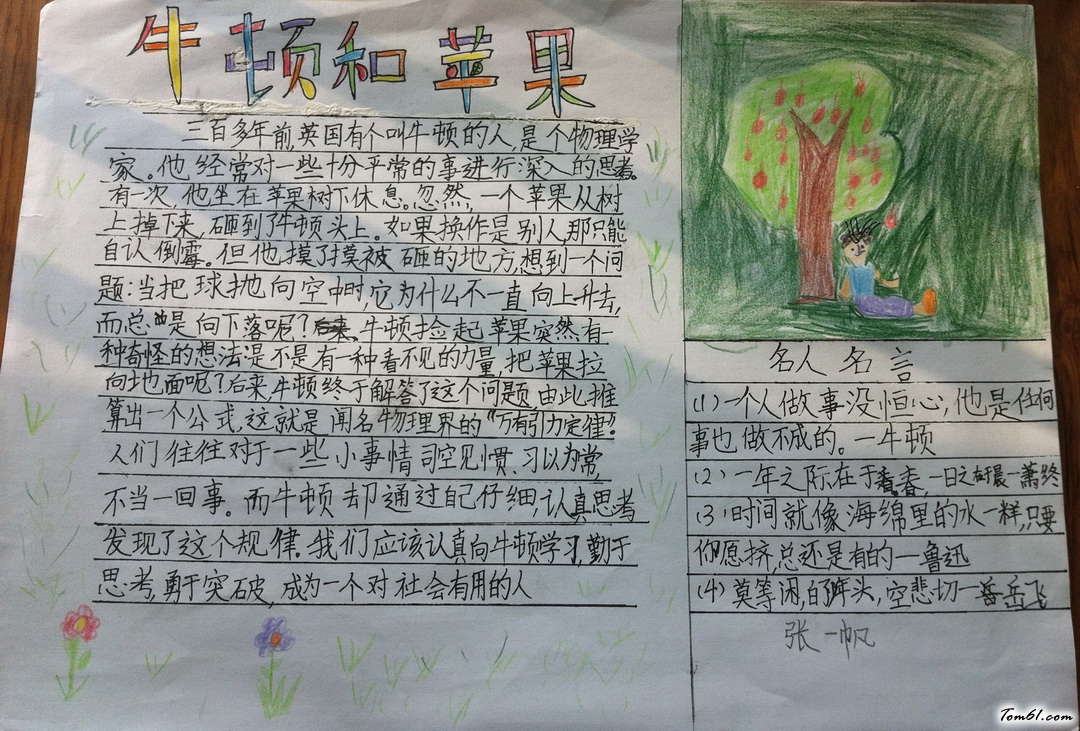 牛顿和苹果
三百多年前,英国有个叫牛顿的人,是个物理学
家。他经常对一些十分平常的事进行深入的思考。
有一次,他坐在苹果树下休息。忽然,一个苹果从树
上掉下来,砸到了牛顿头上。如果换作是别人,那只能
自认倒霉。但他摸了摸被砸的地方,想到一个问
题:当把球抛向空中时,它为什么不一直向上升去,
而总是向下落呢?牛顿捡起苹果突然有一
种奇怪的想法:是不是有一种看不见的力量,把苹果拉
向地面呢?后来牛顿终于解答了这个问题由此推
算出一个公式,这就是闻名物理界的“万有引力定律”。
人们往往对于一些小事情司空见惯、习以为常,
不当一回事。而牛顿却通过自己仔细,认真思考
发现了这个规律。我们应该认真向牛顿学习,勤于
思考,勇于突破,成为一个对社会有用的人
名人名言
(1)一个人做事没恒心,他是任何
事也做不成的。一牛顿
(2)一年之际在于春,一日之在于晨一萧终
(3)时间就像海绵里的水一样,只要
你愿挤,总还是有的一鲁迅
(4)莫等闲,白头,空悲切一岳飞
张一帆
Tom61.com